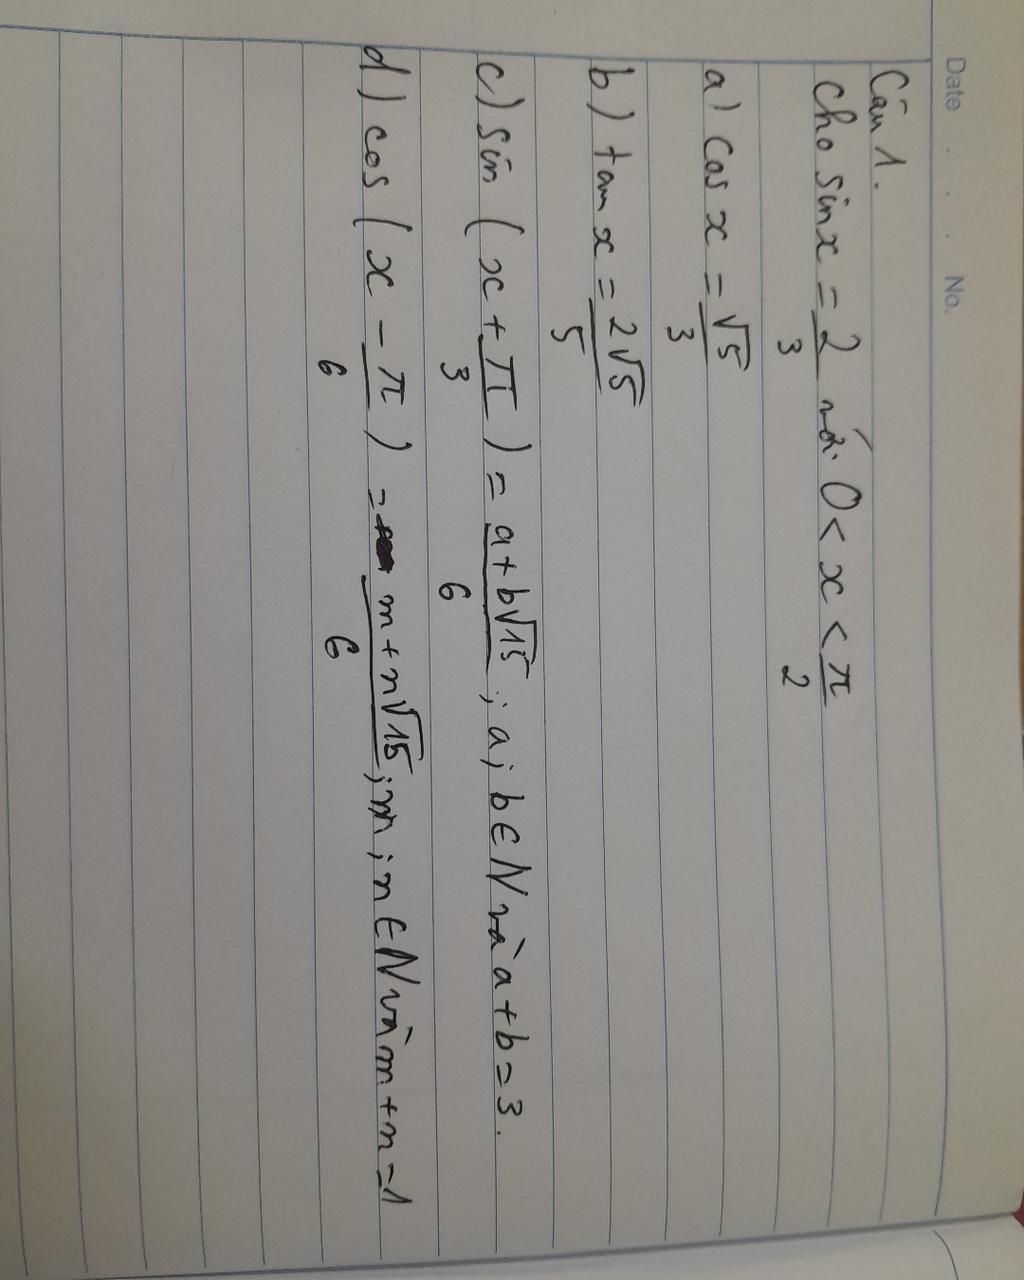 Date . . . No.
Câu 1.
Cho sinx = 2/3 với 0 < x < π/2
a) cos x = √5/3
b) tan x = 2√5/5
c) sin (x + π/3) = a + b√15/6 ; a; b ∈ N và a + b = 3.
d) cos (x - π/6) = m + n√15/6 ; m ; n ∈ N và m + n = 1